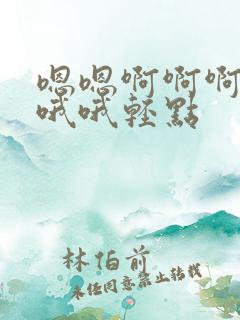 嗯嗯啊啊啊
哦哦轻點
林伯前
未经同意禁止转载